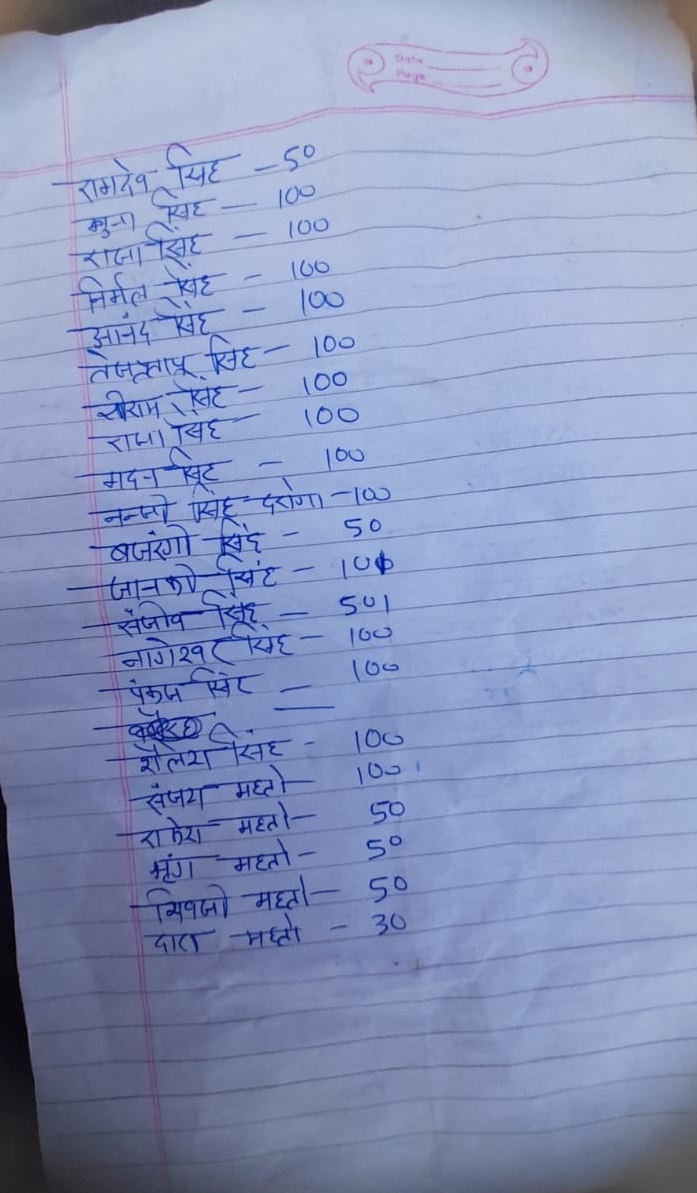 Date
Page
रामदेव सिंह - 50
मुन्ना सिंह - 100
राजा सिंह - 100
निर्मल सिंह - 100
आनंद सिंह - 100
तेजप्रताप सिंह - 100
सिंह - 100
राजा सिंह - 100
मदन सिंह - 100
नन्जी सिंह दरोगा - 100
बजरंगी सिंह - 50
जानकी सिंह - 100
संजीव सिंह - 501
नागेश्वर सिंह - 100
पंकज सिंह - 100
शैलेश सिंह - 100
संजय महतो - 100
राकेश महतो - 50
भृंग महतो - 50
शिवजी महतो - 50
महतो - 30